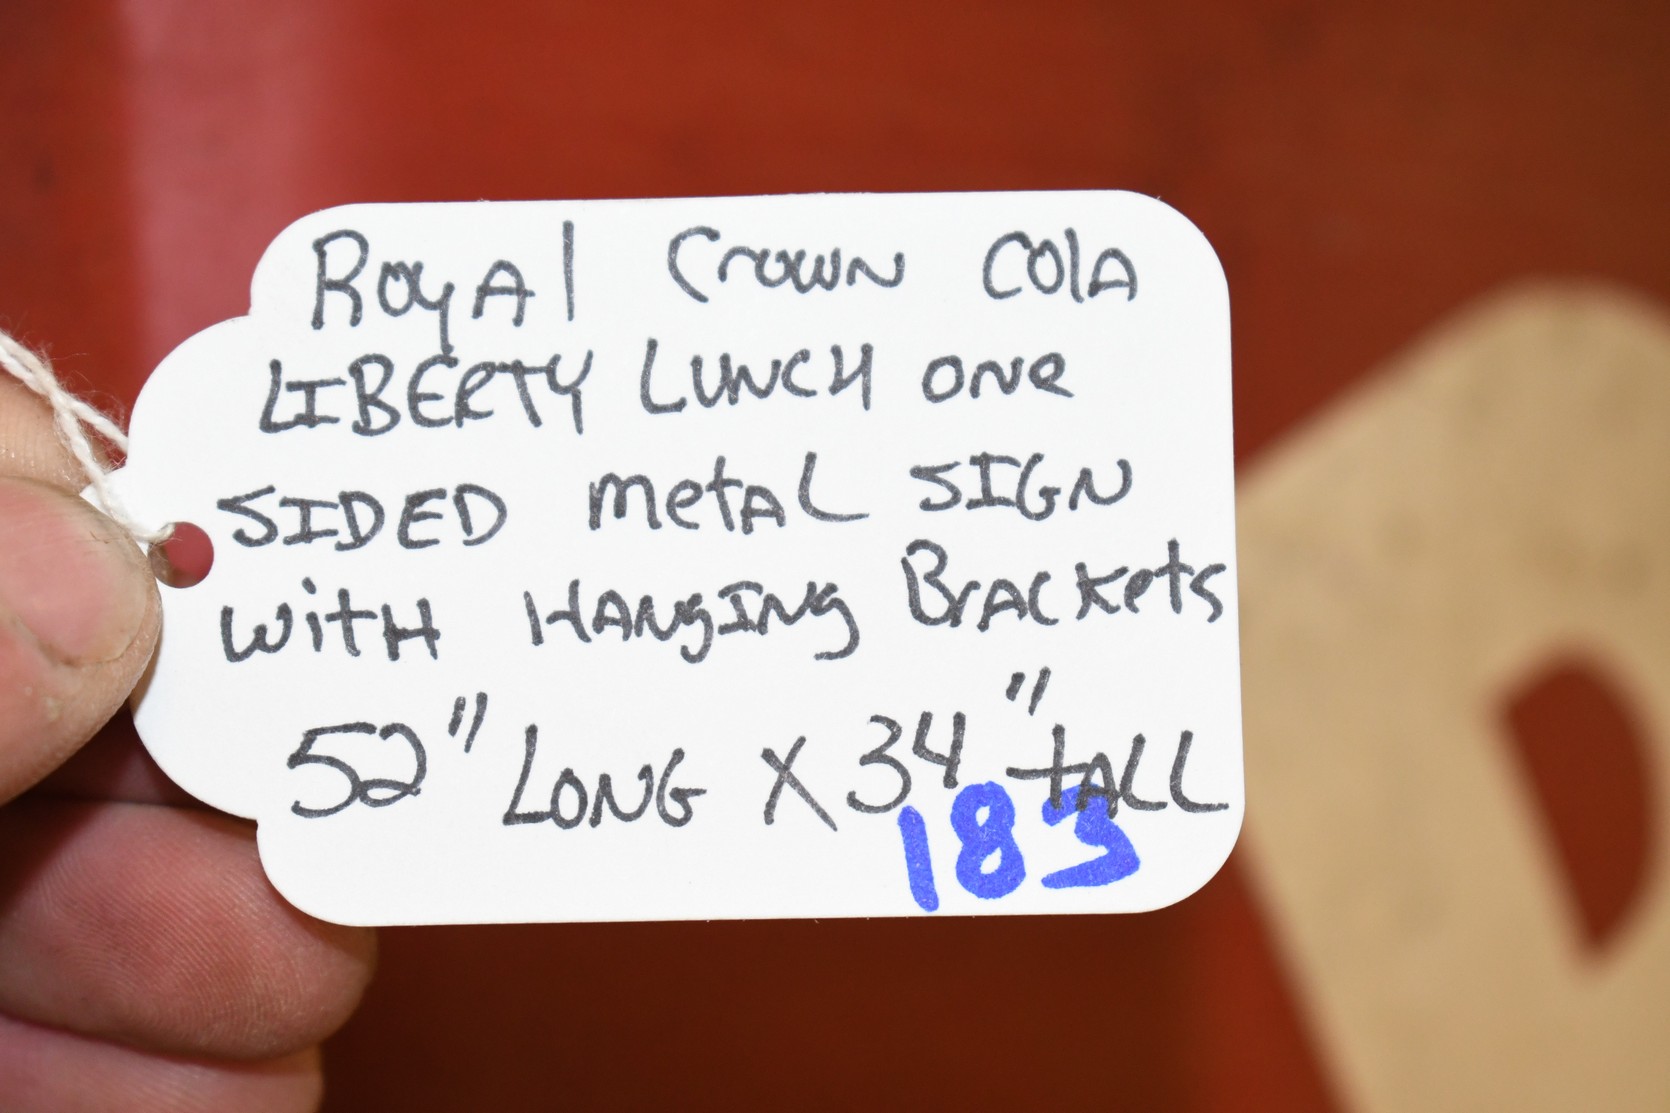 Royal Crown Cola
LIBERTY LUNCH one
SIDED metal SIGN
with HANgINg Brackets
52" LONG X 34" tALL
183